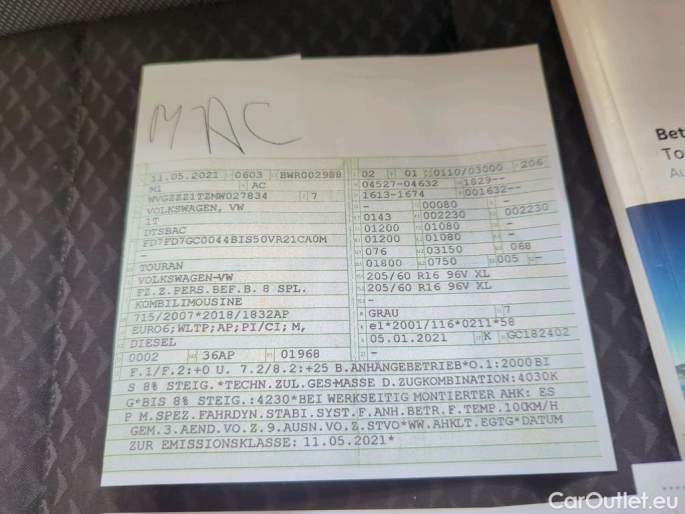 MAC
11.05.2021 0603 BWR002988
M1 AC
WVGZZZ1TZMW027834 7
VOLKSWAGEN, VW
1T
DTSBAC
FD7FD7GC0044BIS50VR21CA0M
-
TOURAN
VOLKSWAGEN-VW
FZ.Z.PERS.BEF.B. 8 SPL.
KOMBILIMOUSINE
715/2007*2018/1832AP
EURO6;WLTP;AP;PI/CI; M,
DIESEL
0002 36AP 01968
02 01 0110/03000 206
04527-04632 1829--
1613-1674 001632--
- 00080 -
0143 002230 002230
01200 01080 -
01200 01080 -
076 03150 068
01800 0750 005 -
205/60 R16 96V XL
205/60 R16 96V XL
-
GRAU 7
e1*2001/116*0211*58
05.01.2021 K GC182402
-
F.1/F.2:+0 U. 7.2/8.2:+25 B.ANHÄNGEBETRIEB*O.1:2000BI
S 8% STEIG.*TECHN.ZUL.GES-MASSE D.ZUGKOMBINATION:4030K
G*BIS 8% STEIG.:4230*BEI WERKSEITIG MONTIERTER AHK: ES
P M.SPEZ.FAHRDYN.STABI.SYST.F.ANH.BETR.F.TEMP.100KM/H
GEM.3.AEND.VO.Z.9.AUSN.VO.Z.STVO*WW.AHKLT.EGTG*DATUM
ZUR EMISSIONSKLASSE: 11.05.2021*
Bet
To
Au
CarOutlet.eu